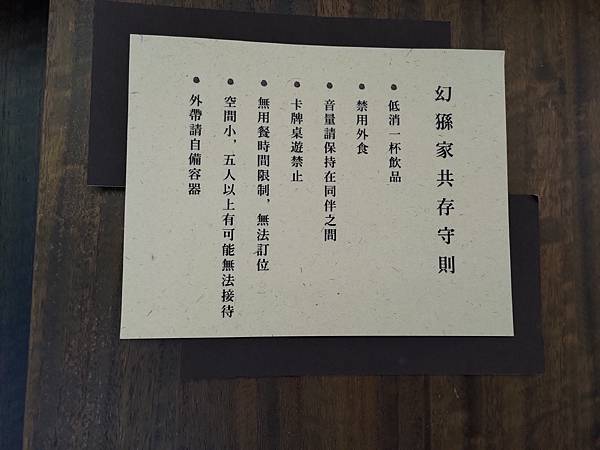 幻猻家共存守則
● 低消一杯飲品
● 禁用外食
● 音量請保持在同伴之間
● 卡牌桌遊禁止
● 無用餐時間限制，無法訂位
● 空間小，五人以上有可能無法接待
● 外帶請自備容器